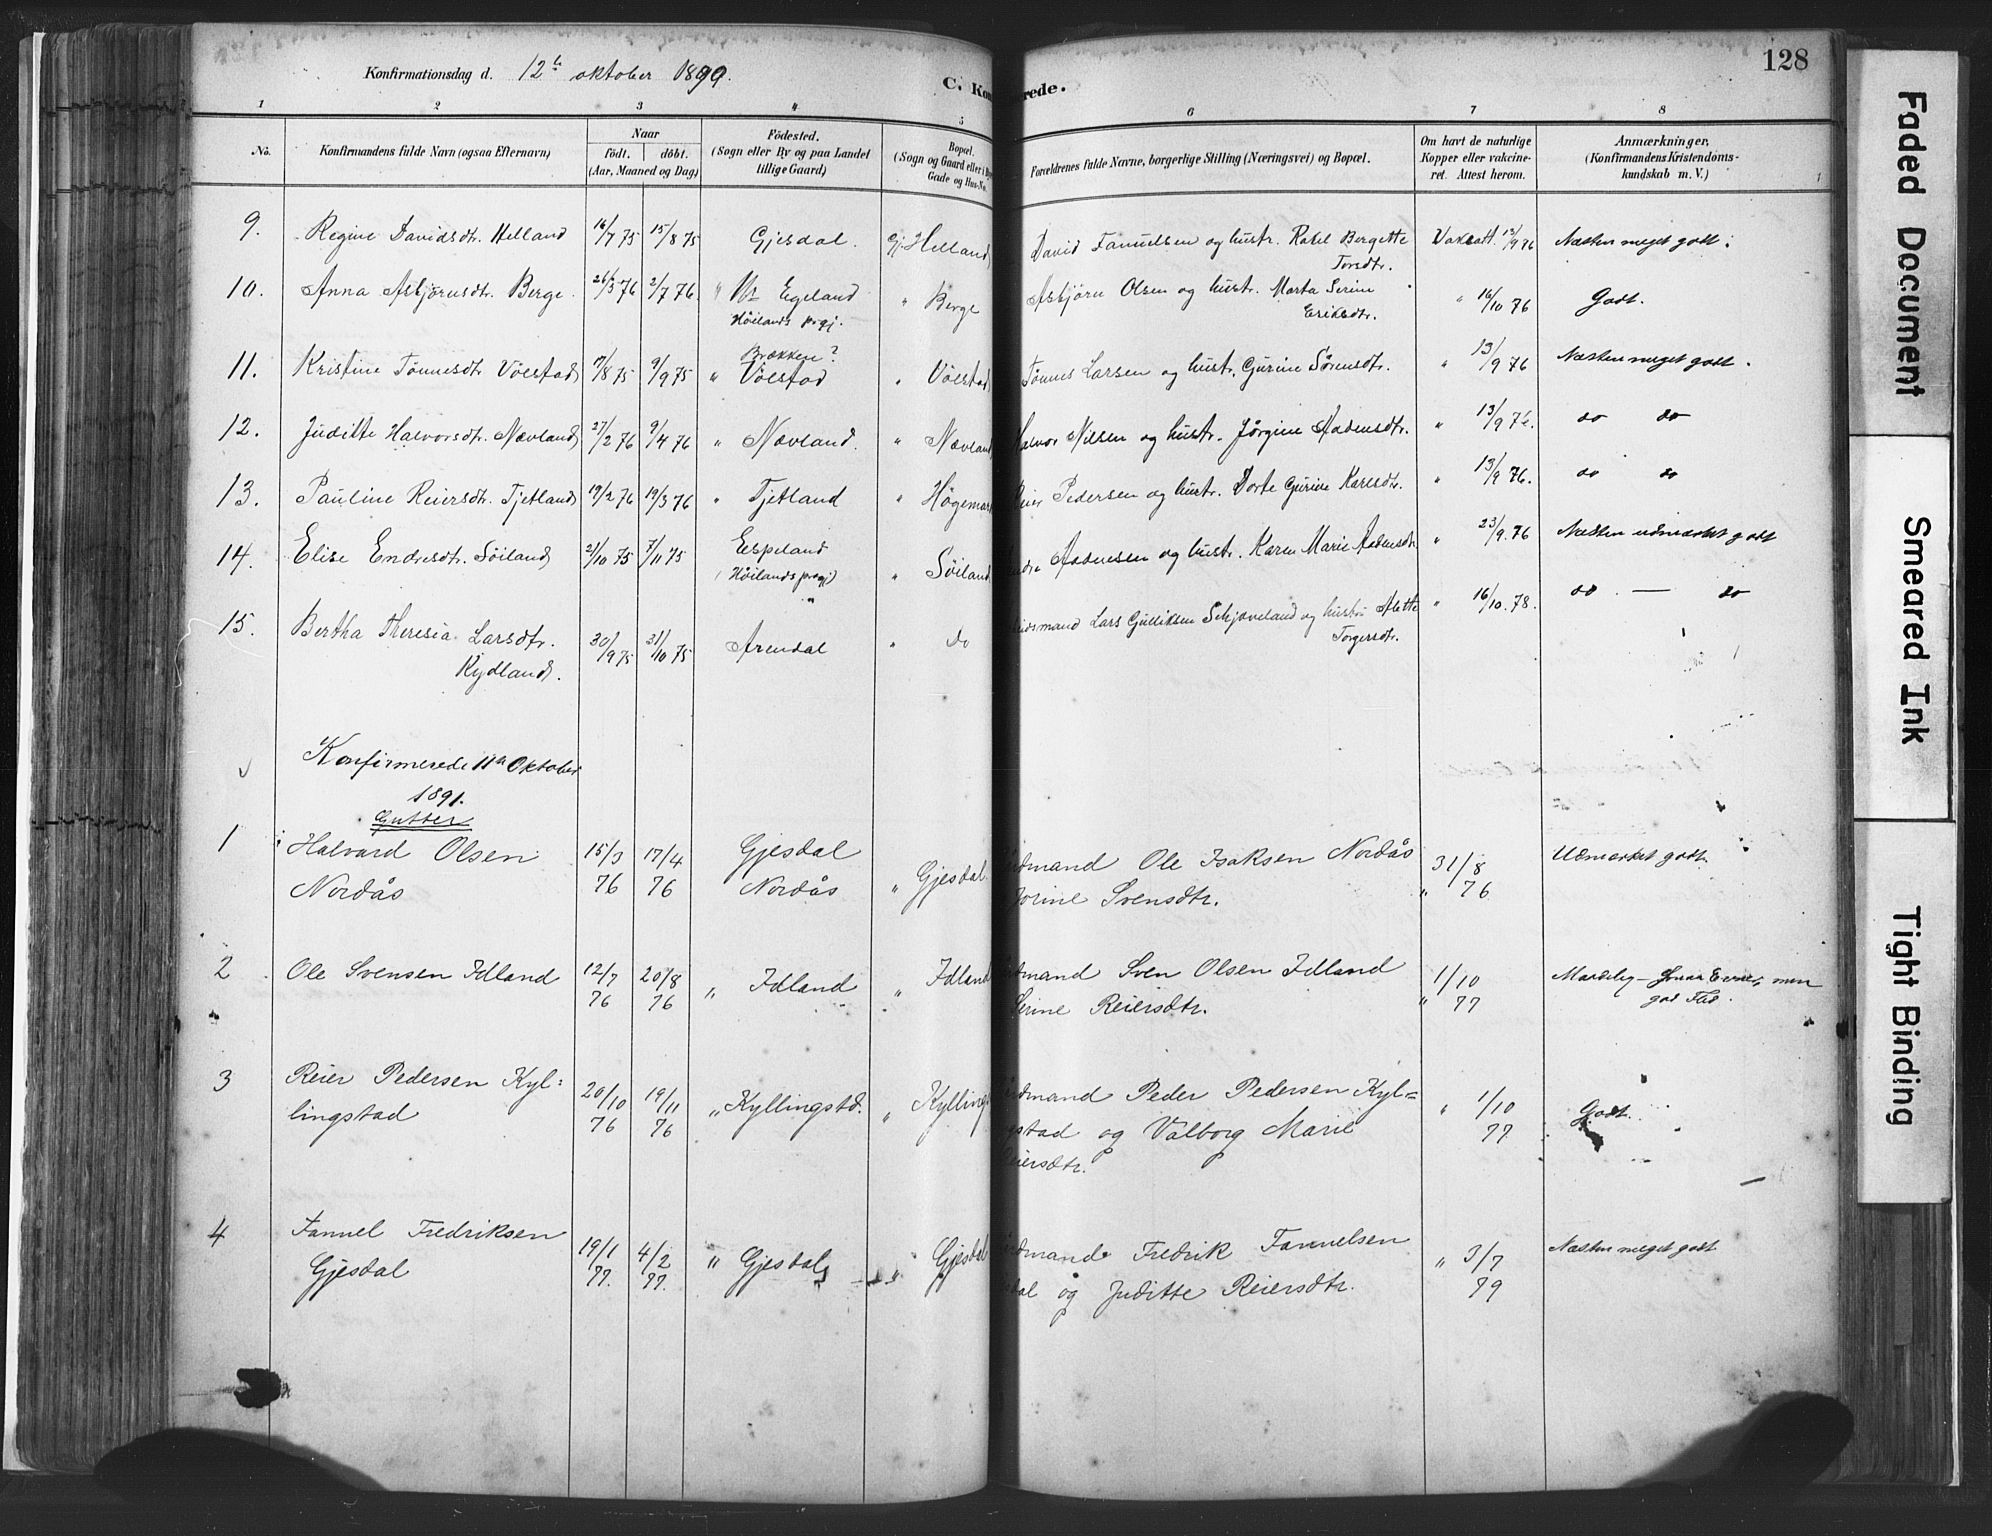 Konfirmationsdag d. 12te oktober 1890.
C. Kon rede.
128
1 2 3 4 5 6 7 8
No.
Konfirmandens fulde Navn (ogsaa Efternavn)
Naar
födt. döbt.
(Aar, Maaned og Dag)
Födested.
(Sogn eller By og paa Landet
tillige Gaard)
Bopæl.
(Sogn og Gaard eller i By
Gade og Hus-No.
Forældrenes fulde Navne, borgerlige Stilling (Næringsvei) og Bopæl.
Om havt de naturlige
Kopper eller vakcine-
ret. Attest herom.
Anmærkninger,
(Konfirmandens Kristendoms-
kundskab m. V.)
9. Regine Davidsdtr. Helland 16/7 75 15/8 75 Gjesdal. Gj. Helland David Fanuelsen og hustr. Rakel Bergette Vaksatt. 13/9 76 Næsten meget godt.
Torsdtr.
10. Anna Asbjörnsdtr. Berge. 26/3 76 2/7 76 " Egeland " Berge Asbjörn Olsen og hustr. Marta Serine " 16/10 76 Godt.
Höilands prgj. Eriksdtr.
Brækken?
11. Kristine Tönnesdtr Völstad 17/8 75 9/9 75 " Völstad " Völstad Tönnes Larsen og hustr. Gurine Sörensdtr. " 13/9 76 Næsten meget godt.
12. Juditte Halvorsdtr. Nævland 27/2 76 9/4 76 " Nævland. " Nævland Halvor Nilsen og hustr. Jörgine Aadensdtr. " 13/9 76. do do
13. Pauline Reiersdtr. Tjetland 19/2 76 19/3 76 " Tjetland " Högemark Reier Pedersen og hustr. Dorte Gurine Karlsdtr. " 13/9 76. do do
14. Elise Endresdtr. Söiland 21/10 75 7/11 75 Espeland " Söiland Endre Aadnesen og hustr. Karen Marie Aadensdtr " 23/9. 76 Næsten udmærket godt
(Höilands prgj)
15. Bertha Theresia Larsdtr. 30/9 75 31/10 75 Arendal " do Lars Gulliksen Schjæveland og hustru Alette " 16/10. 78. do — do
Kydland. Torgersdtr.
Konfirmerede 11te Oktober
1891.
Gutter
1 Halvard Olsen 15/3 17/4 Gjesdal " Gjesdal. rdmand Ole Isaksen Nordås 31/8 Udmærket godt.
Nordås 76 76 Nordås Jorine Svensdtr. " 76
2 Ole Svensen Idland 12/7 20/8 " Idland " Idland rdmand Sven Olsen Idland 1/10 Maadelig – smaa Evner, men
76 76 Serine Reiersdtr. " 77 god Flid.
3 Reier Pedersen Kyl= 20/10 19/11 " Kyllingstd. " Kylling rdmand Peder Pedersen Kyl= " 1/10 Godt.
lingstad 76 76 gstad og Valborg Marie 77
Reiersdtr.
4 Fanuel Fredriksen 19/1 4/2 " Gjesdal " Gjesdal rdmand Fredrik Fanuelsen " 3/7 Næsten meget godt
Gjesdal 77. 77. dal og Juditte Reiersdtr. 79
Faded Document
Smeared Ink
Tight Binding